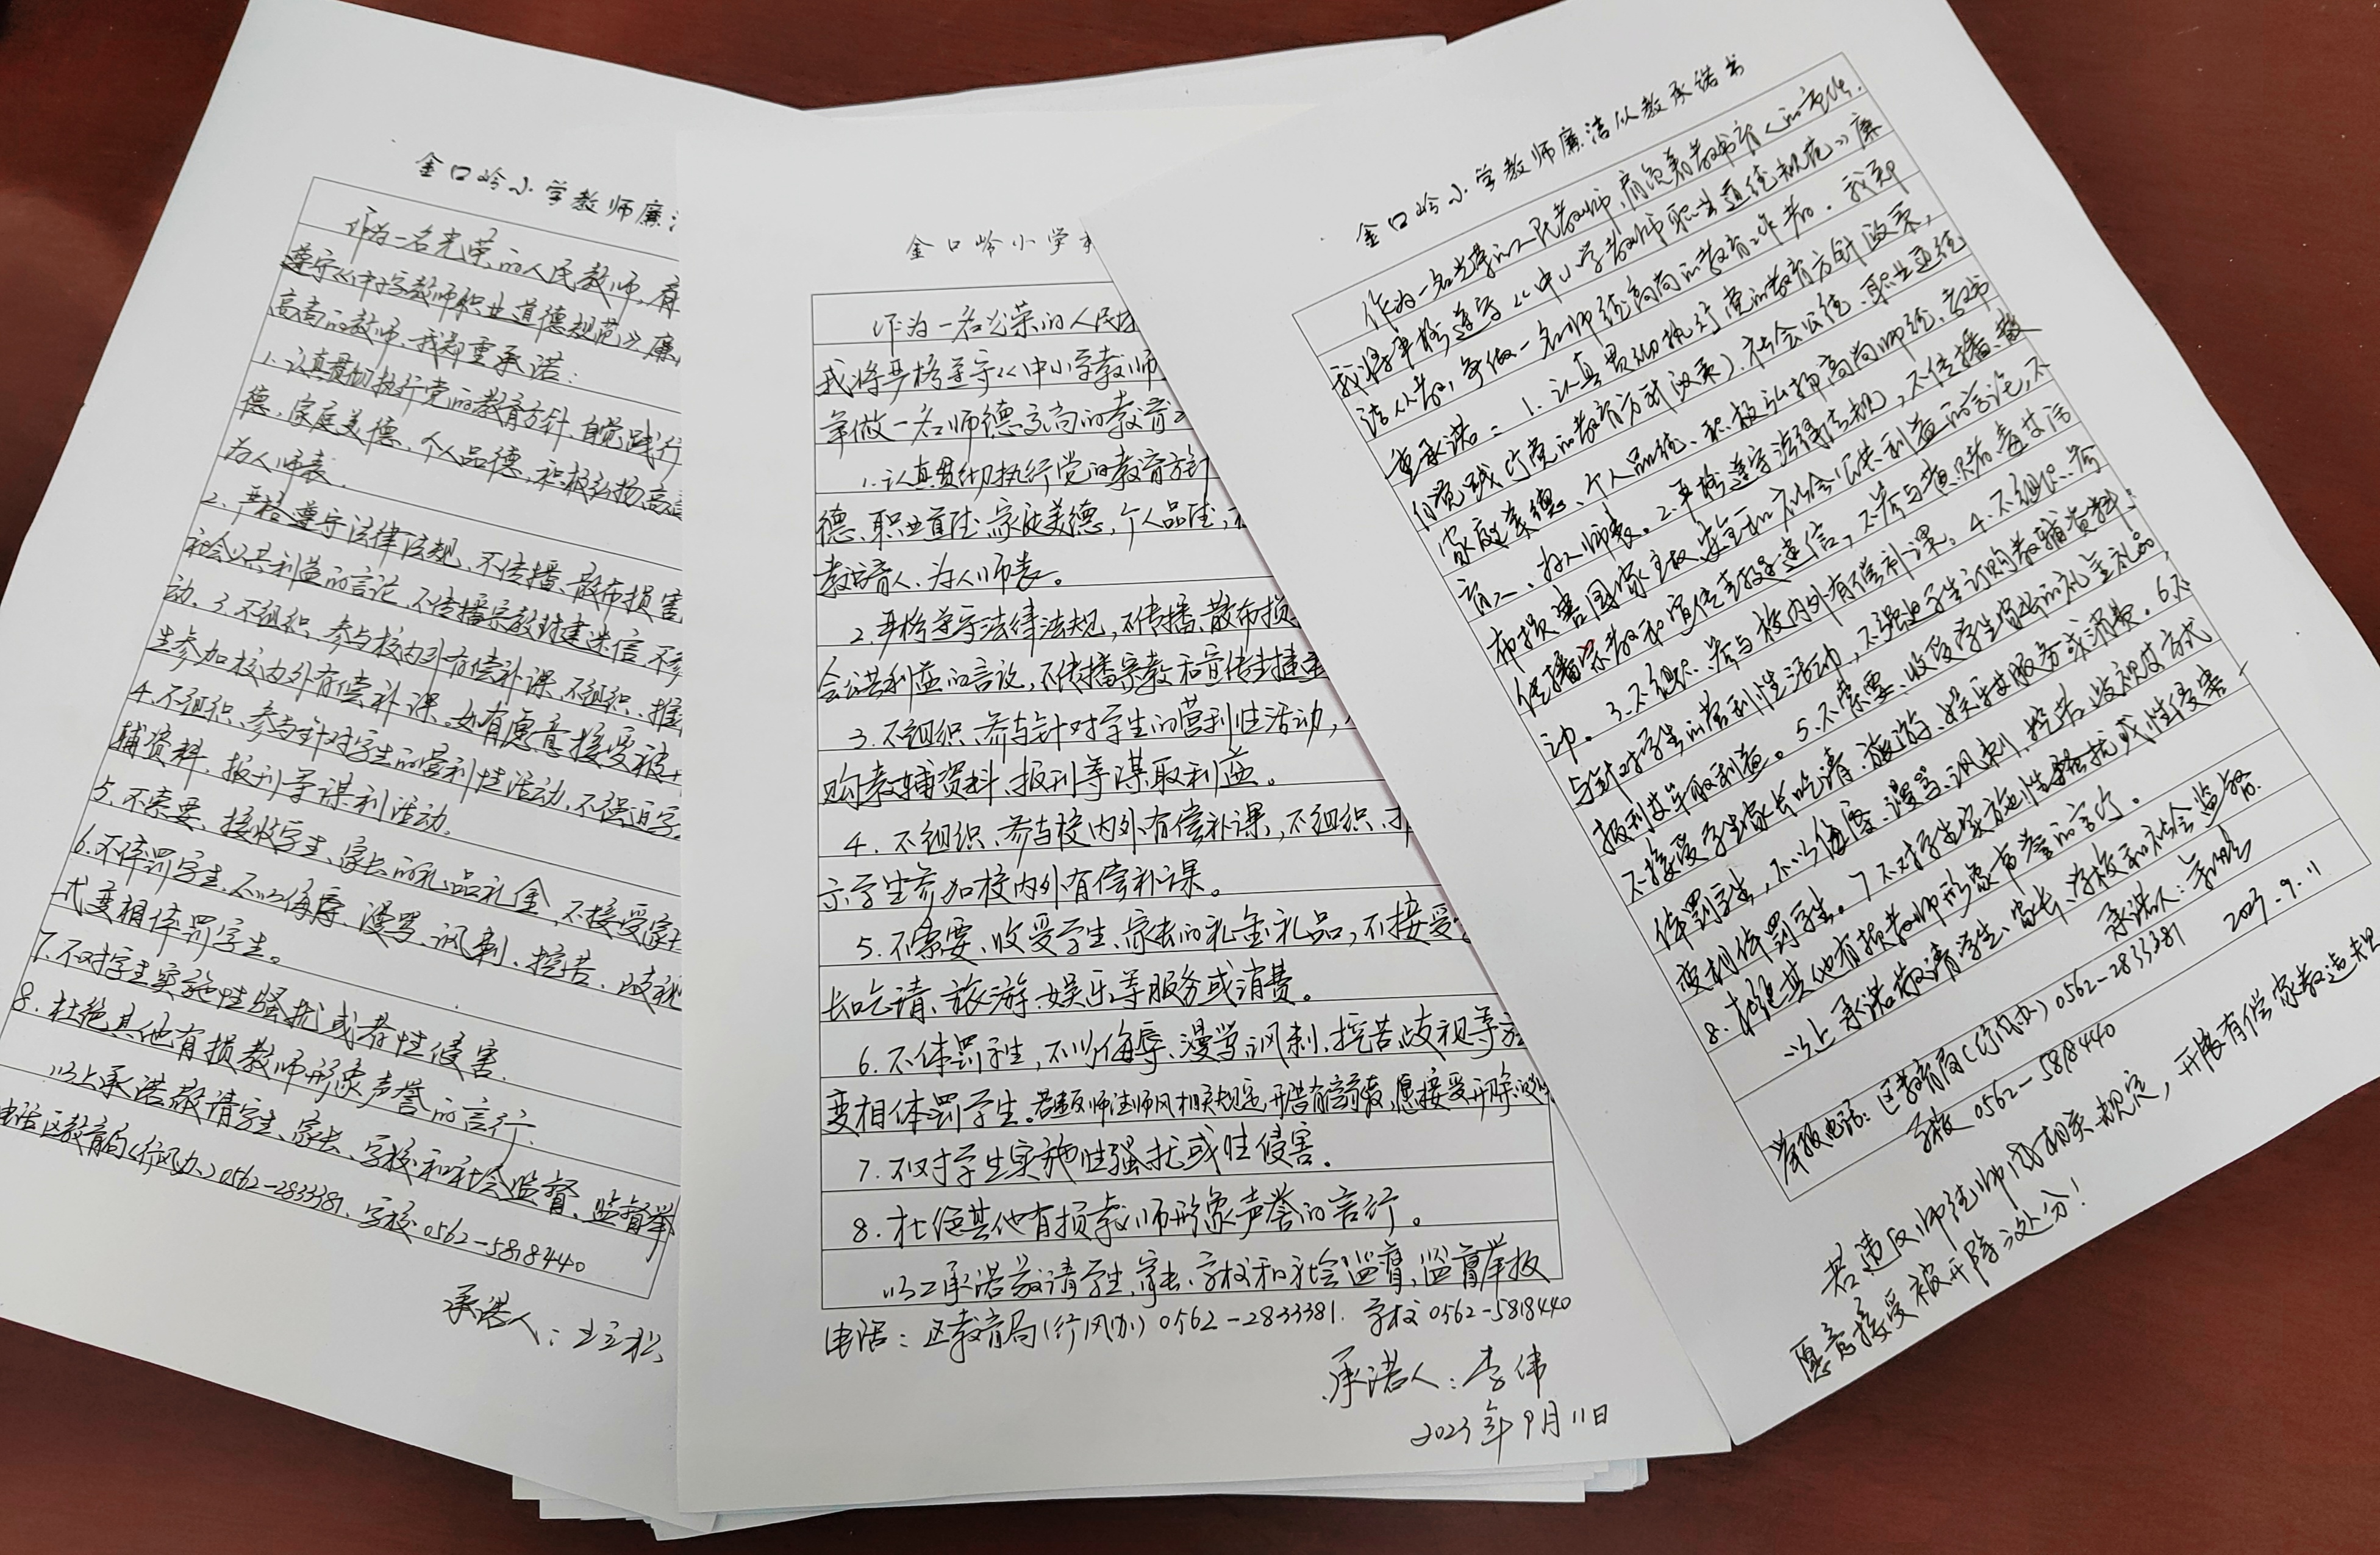 金口岭小学教师廉洁
作为一名光荣的人民教师，肩
遵守《中小学教师职业道德规范》廉
高尚的教师，我郑重承诺：
1.认真贯彻执行党的教育方针、自觉践行
德、家庭美德、个人品德，积极弘扬高
为人师表．
2.严格遵守法律法规、不传播、散布损害
社会公共利益的言论，不传播宗教封建迷信，不参
动．3.不组织、参与校内外有偿补课，不组织、推
生参加校内外有偿补课。如有愿意接受被
4.不组织、参与针对学生的营利性活动，不强迫学
辅资料、报刊等谋利活动．
5.不索要、接收学生、家长的礼品礼金，不接受家长
6.不体罚学生，不以侮辱、漫骂、讽刺、挖苦、歧视
式变相体罚学生。
7.不对学生实施性骚扰或者性侵害．
8.杜绝其他有损教师形象声誉的言行．
以上承诺敬请学生、家长、学校和社会监督、监督举
电话区教育局(行风办)0562-2833381、学校0562-5818440
承诺人：
金口岭小学教
作为一名光荣的人民教
我将严格遵守《中小学教师
争做一名师德高尚的教育
1.认真贯彻执行党的教育方针
德、职业道德、家庭美德，个人品德，
教书育人、为人师表。
2.严格遵守法律法规，不传播、散布损
会公共利益的言论，不传播宗教和宣传封建迷
3.不组织、参与针对学生的营利性活动，
购教辅资料、报刊等谋取利益。
4.不组织、参与校内外有偿补课，不组织、
示学生参加校内外有偿补课。
5.不索要、收受学生、家长的礼金、礼品，不接受
长吃请、旅游、娱乐等服务或消费。
6.不体罚学生，不以侮辱、漫骂、讽刺、挖苦、歧视等方
变相体罚学生。若违反师德师风相关规定，开展有偿家教，愿接受开除
7.不对学生实施性骚扰或性侵害．
8.杜绝其他有损教师形象声誉的言行。
以上承诺敬请学生、家长、学校和社会监督、监督举报
电话：区教育局(行风办)0562-2833381．学校0562-5818440
承诺人：李伟
2023年9月11日
金口岭小学教师廉洁从教承诺书
作为一名光荣的人民教师，肩负着教书育人的
我将严格遵守《中小学教师职业道德规范》廉
洁从教，争做一名师德高尚的教育工作者．我郑
重承诺：1.认真贯彻执行党的教育方针政策，
自觉践行党的教育方针政策、社会公德、职业道德
家庭美德、个人品德、积极弘扬高尚师德、教书
育人、为人师表。2.严格遵守法律法规，不传播、散
布损害国家主权、安全和社会公共利益的言论，不
传播宗教和宣传封建迷信，不参与黄赌毒等活
动。3.不组织、参与校内外有偿补课，4.不组织、参
与针对学生的营利性活动，不强迫学生订购教辅资料、
报刊等牟取利益。5.不索要、收受学生家长的礼金礼品，
不接受学生家长吃请、旅游、娱乐等服务或消费。6.不
体罚学生，不以侮辱、漫骂、讽刺、挖苦、歧视等方式
变相体罚学生。7.不对学生实施性骚扰或性侵害，
8.杜绝其他有损教师形象声誉的言行．
以上承诺敬请学生、家长、学校和社会监督．
承诺人：
2023.9.11
举报电话：区教育局(行风办)0562-2833381
学校0562-5818440
若违反师德师风相关规定，开展有偿家教违规
愿意接受被开除处分！